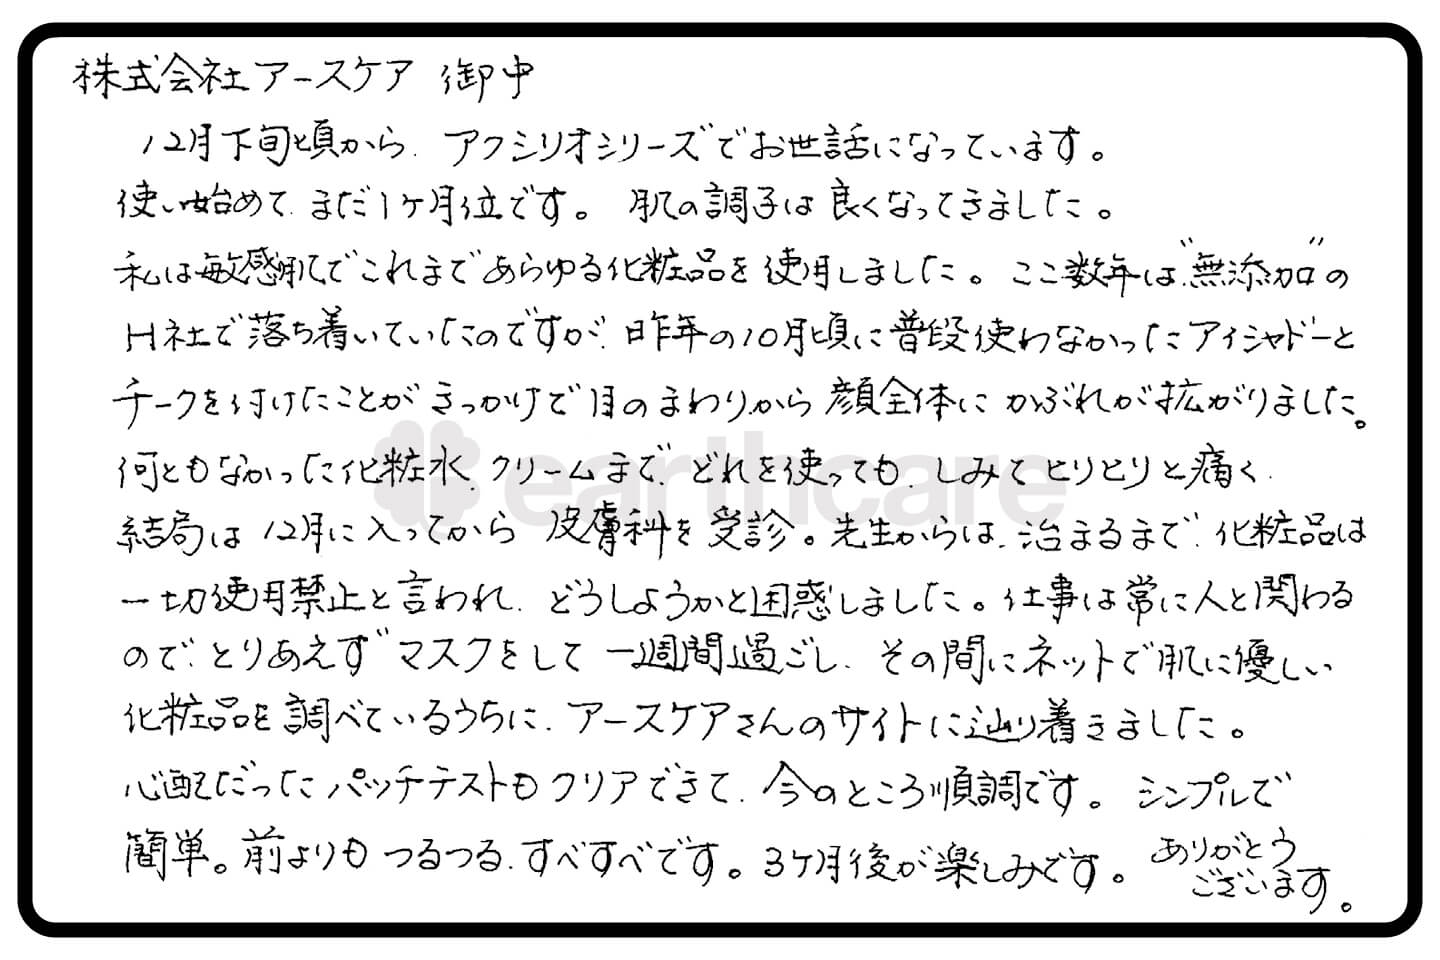 株式会社アースケア 御中
12月下旬頃から、アクシリオシリーズでお世話になっています。
使い始めて、まだ1ヶ月位です。 肌の調子は良くなってきました。
私は敏感肌でこれまであらゆる化粧品を使用しました。ここ数年は"無添加"の
H社で落ち着いていたのですが、昨年の10月頃に普段使わなかったアイシャドーと
チークを付けたことがきっかけで目のまわりから顔全体にかぶれが拡がりました。
何ともなかった化粧水、クリームまで、どれを使っても、しみてヒリヒリと痛く、
結局は12月に入ってから皮膚科を受診。先生からは、治まるまで、化粧品は
一切使用禁止と言われ、どうしようかと困惑しました。仕事は常に人と関わる
ので、とりあえずマスクをして一週間過ごし、その間にネットで肌に優しい
化粧品を調べているうちに、アースケアさんのサイトに辿り着きました。
心配だったパッチテストもクリアできて、今のところ順調です。シンプルで
簡単。前よりもつるつる、すべすべです。3ヶ月後が楽しみです。ありがとう
ございます。
earthcare